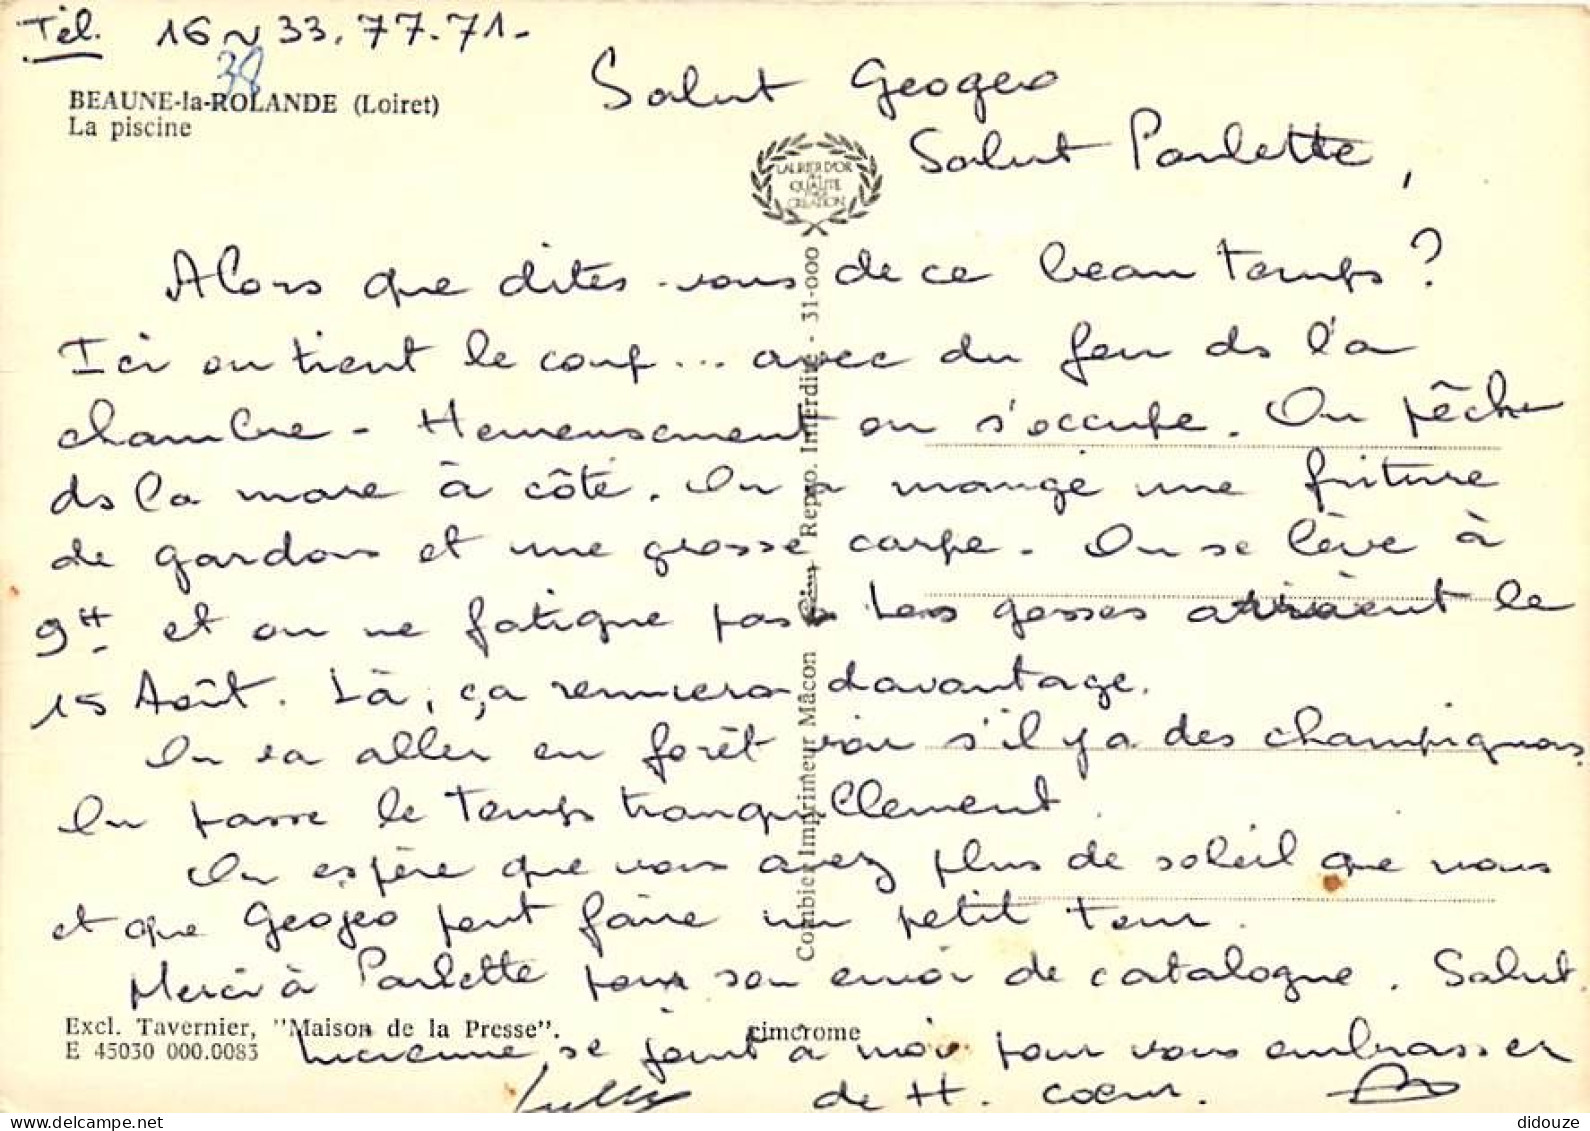 Tél. 16 ~ 33.77.71.-
38
BEAUNE-la-ROLANDE (Loiret)
La piscine
Salut Geogeo
Salut Paulette,
LAURIER D'OR
DE
QUALITE
CREATION
Alors que dites-vous de ce beau temps ?
Ici on tient le coup... avec du feu ds l'a
chambre - Heureusement on s'occupe. On pêche
ds la mare à côté. On a mangé une friture
de gardons et une grosse carpe. On se lève à
9H. et on ne fatigue pas. Les gosses arrivent le
15 Août. Là, ça remuera davantage.
On va aller en forêt voir s'il y a des champignons.
On passe le temps tranquillement.
On espère que vous avez plus de soleil que nous
et que Geogeo peut faire un petit tour.
Merci à Paulette pour son envoi de catalogue. Salut.
Lucienne se joint à moi pour vous embrasser
de tt. coeur.
Combier Imprimeur Mâcon Repro. Interdite - 31-000
Excl. Tavernier, "Maison de la Presse".
E 45030 000.0083
cimcrome
didouze